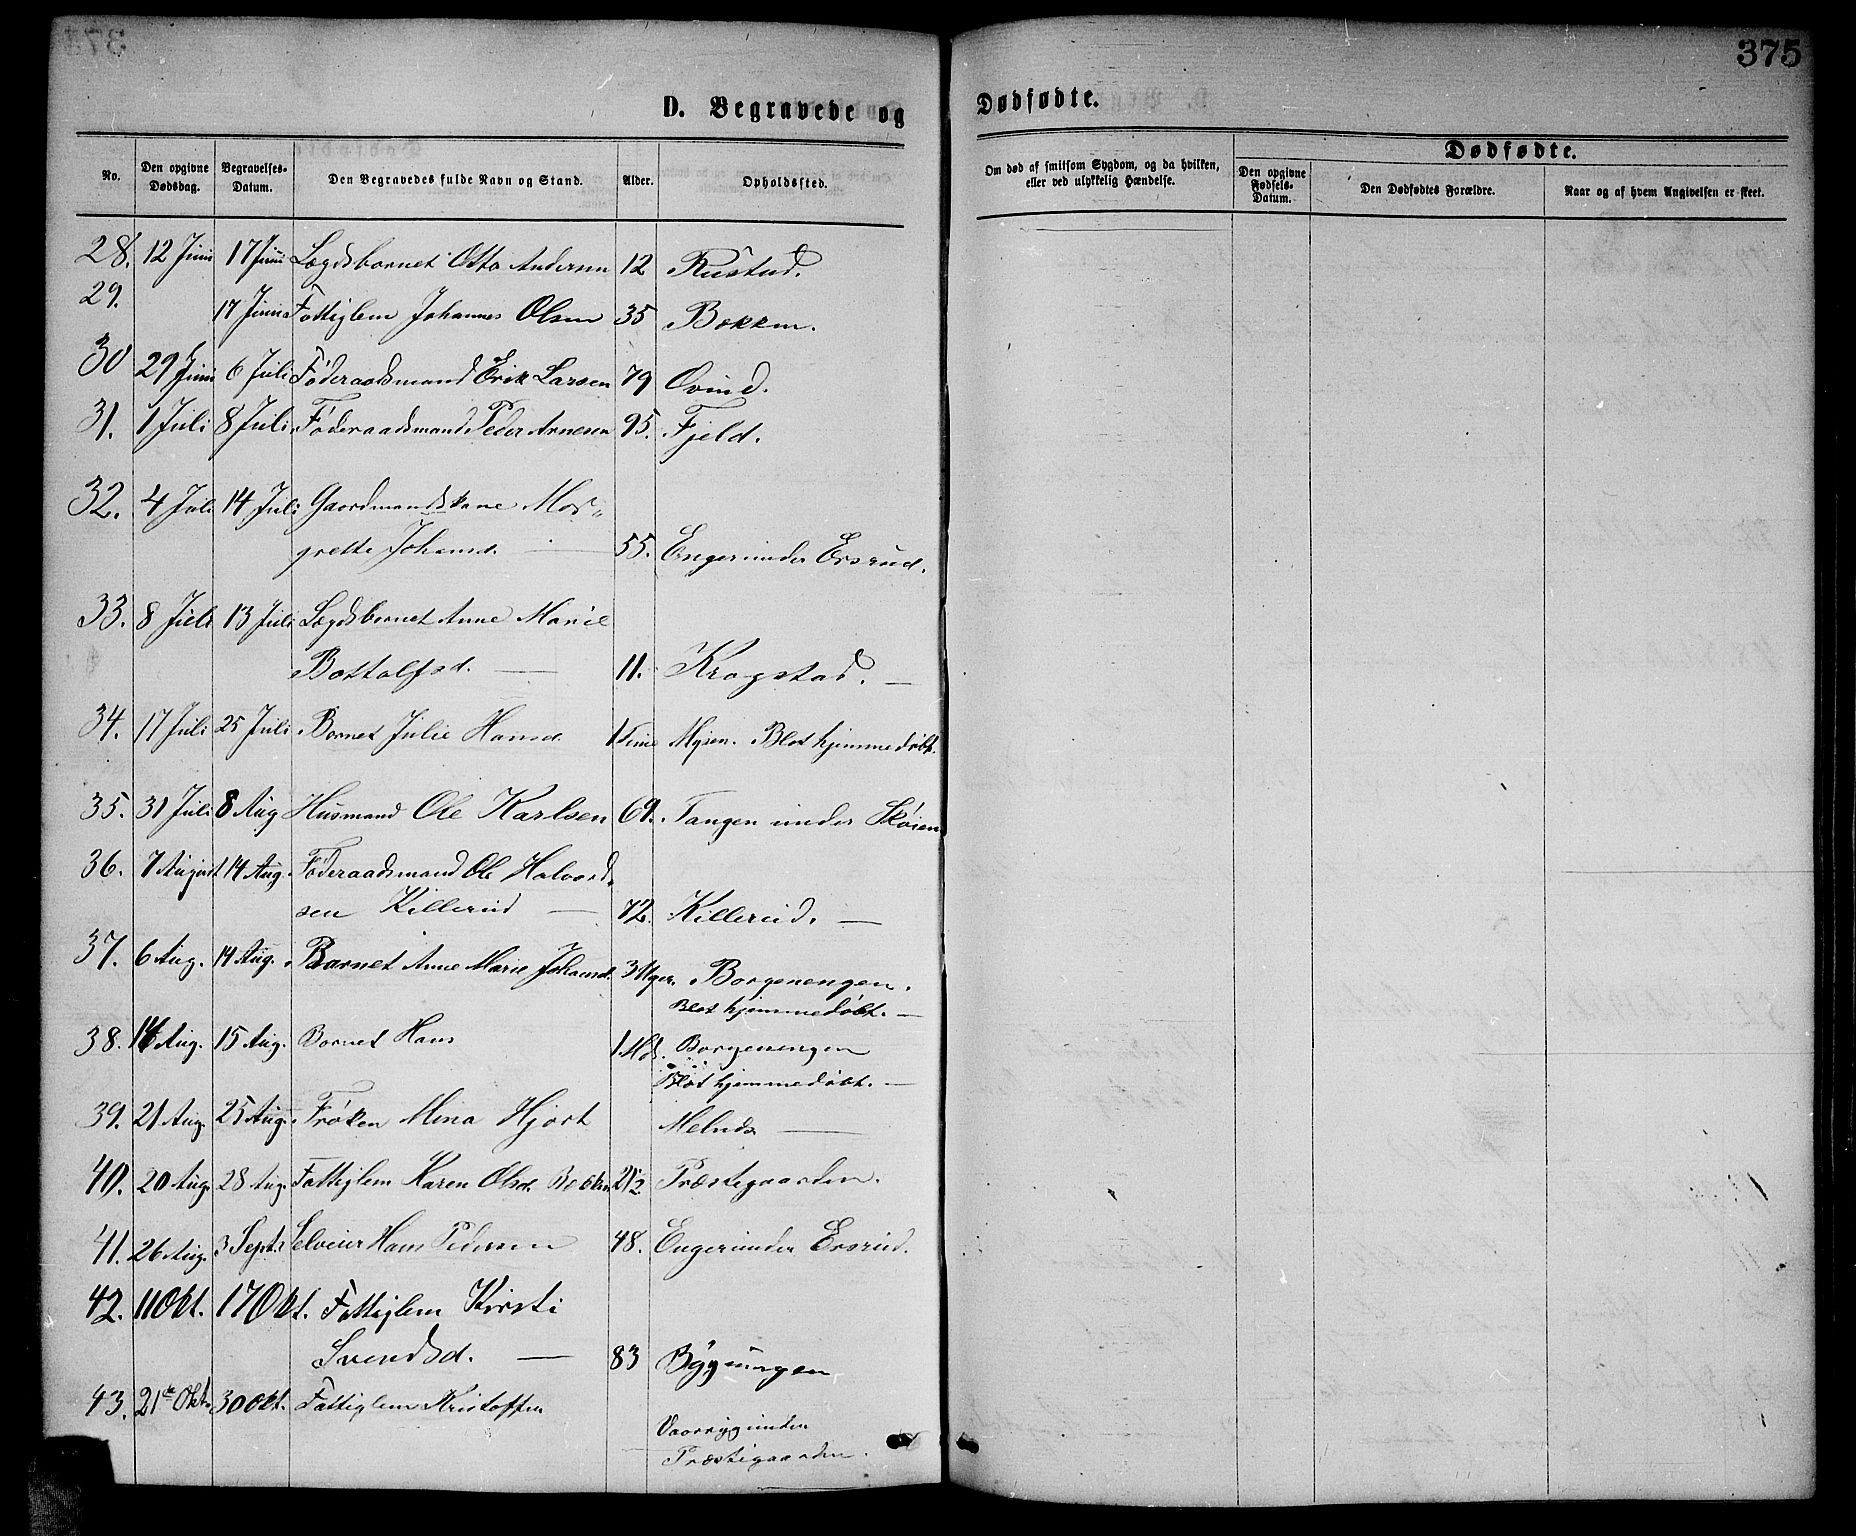 375
D. Begravede og Dødfødte.
No.
Den opgivne Dødsdag.
Begravelses-Datum.
Den Begravedes fulde Navn og Stand.
Alder.
Opholdssted.
Om død af smitsom Sygdom, og da hvilken, eller ved ulykkelig Hændelse.
Dødfødte.
Den opgivne Fødsels-Datum.
Den Dødfødtes Forældre.
Naar og af hvem Angivelsen er skeet.
28. 12 Juni 17 Juni Lægdsbarnet Otto Andersen 12 Rustad.
29. 17 Juni Fattiglem Johannes Olsen 35 Bakken.
30 29 Juni 6 Juli Føderaadsmand Erik Larsen 79 Ovind.
31. 1 Juli 8 Juli Føderaadsmand Peder Arnesen 95. Fjeld.
32. 4 Juli 14 Juli Gaardmandskone Mar-
grethe Johansd. 55. Enger under Ersrud.
33. 8 Juli 13 Juli Lægdsbarnet Anne Marie
Bottolfsd. — 11. Krogstad. —
34. 17 Juli 25 Juli Barnet Julie Hansd. 1 Time Mysen. Blot hjemmedøbt.
35. 31 Juli 8 Aug Husmand Ole Karlsen 69. Tangen under Skøien
36. 7 August 14 Aug. Føderaadsmand Ole Halvord-
sen Killerud — 72. Killerud. —
37. 6 Aug. 14 Aug. Barnet Anne Marie Johansd. 3 Uger. Borgenengen.
Blot hjemmedøbt. —
38. 14 Aug. 15 Aug. Barnet Hans 1 Md. Borgenengen
Blot hjemmedøbt. —
39. 21 Aug. 25 Aug. Frøken Mina Hjort —
40. 20 Aug. 28 Aug. Fattiglem Karen Olsd. Bakken Præstegaarden.
41. 26 Aug. 3 Sept. Selveier Hans Pedersen 48. Enger under Ersrud.
42. 11 Okt. 17 Okt. Fattiglem Kirsti
Svendsd. — 83 Bygningen
43. 21de Okt. 30 Okt. Fattiglem Kristoffer
under
Præstegaarden.